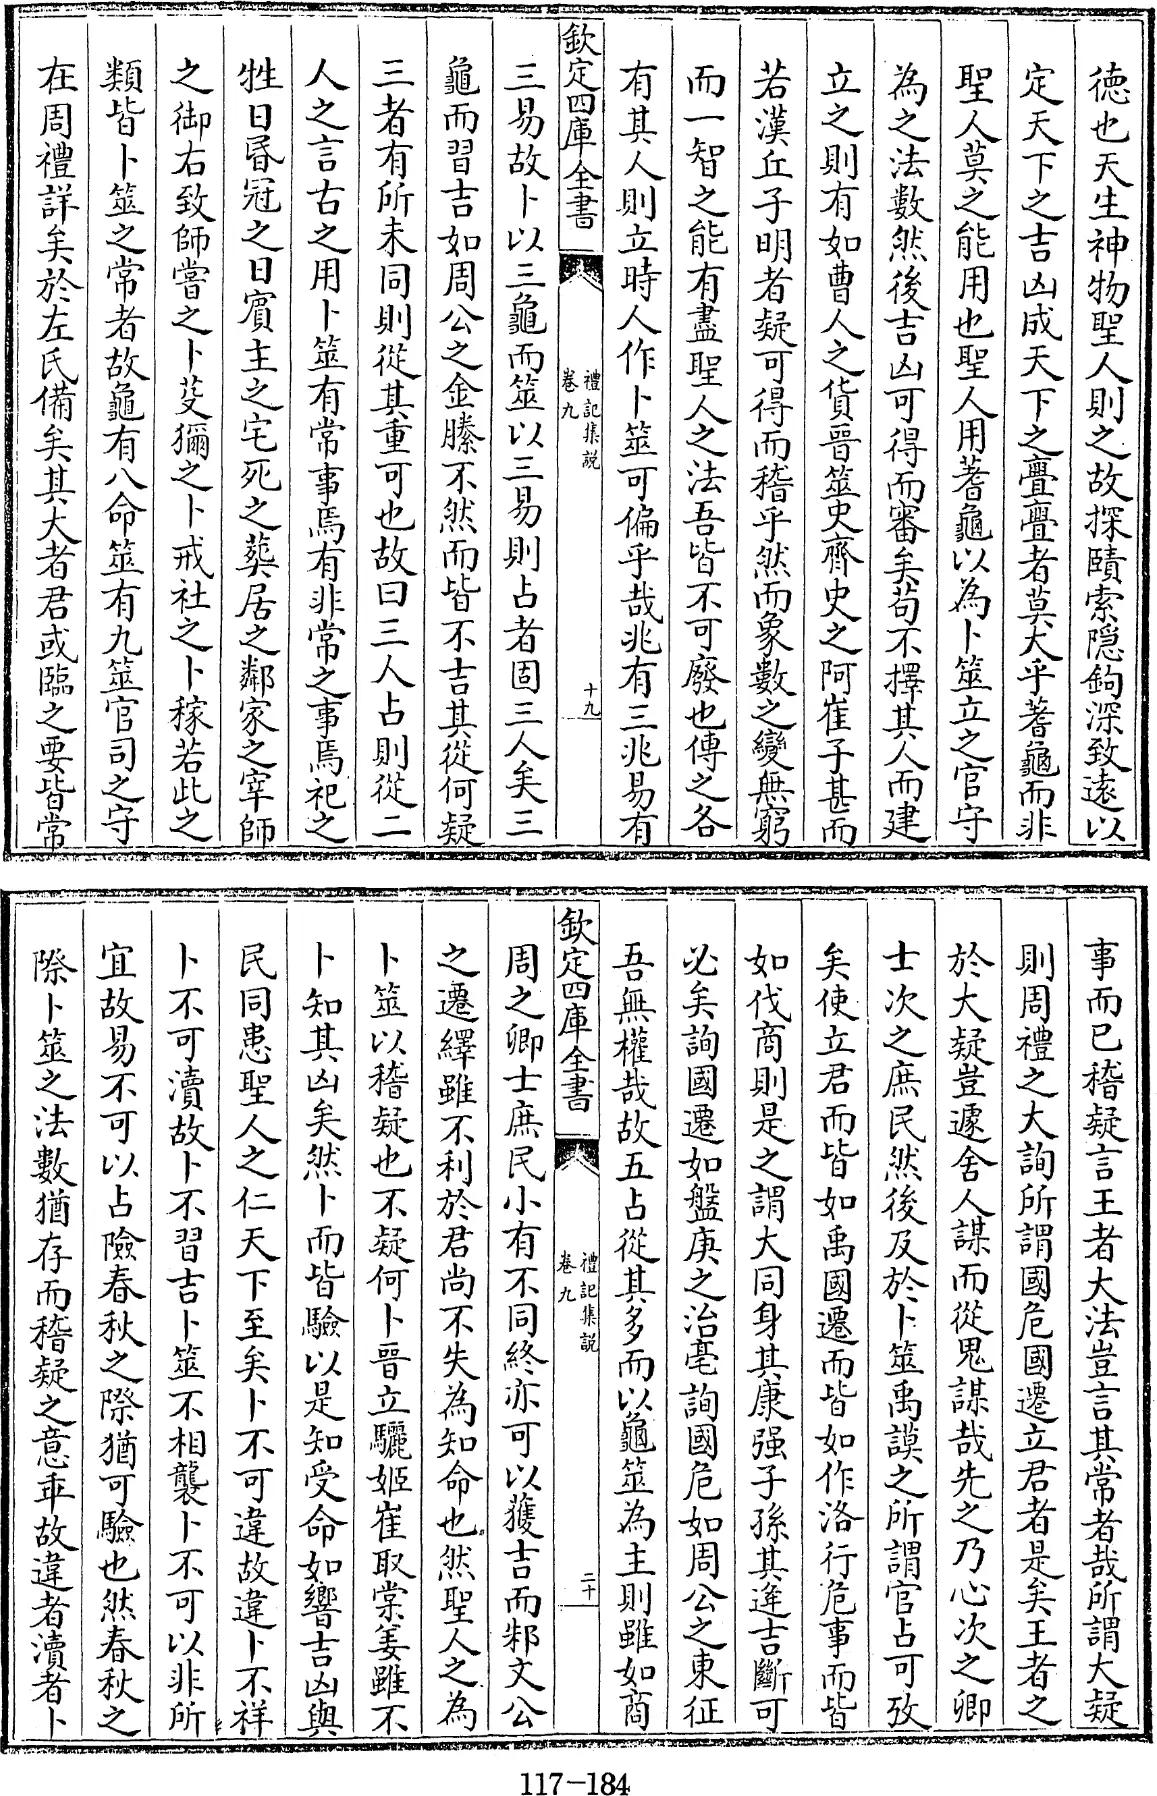 德也天生神物聖人則之故探賾索隱鉤深致遠以
定天下之吉凶成天下之亹亹者莫大乎蓍龜而非
聖人莫之能用也聖人用蓍龜以為卜筮立之官守
為之法數然後吉凶可得而審矣苟不擇其人而建
立之則有如曹人之貨晉筮史齊史之阿崔子甚而
若漢丘子明者疑可得而稽乎然而象數之變無窮
而一智之能有盡聖人之法吾皆不可廢也傳之各
有其人則立時人作卜筮可偏乎哉兆有三兆易有
欽定四庫全書
禮記集說
卷九
十九
三易故卜以三龜而筮以三易則占者固三人矣三
龜而習吉如周公之金縢不然而皆不吉其從何疑
三者有所未同則從其重可也故曰三人占則從二
人之言古之用卜筮有常事焉有非常之事焉祀之
牲日昏冠之日賓主之宅死之葬居之鄰家之宰師
之御右致師嘗之卜芟獮之卜戒社之卜稼若此之
類皆卜筮之常者故龜有八命筮有九筮官司之守
在周禮詳矣於左氏備矣其大者君或臨之要皆常
事而已稽疑言王者大法豈言其常者哉所謂大疑
則周禮之大詢所謂國危國遷立君者是矣王者之
於大疑豈遽舍人謀而從鬼謀哉先之乃心次之卿
士次之庶民然後及於卜筮禹謨之所謂官占可攷
矣使立君而皆如禹國遷而皆如作洛行危事而皆
如伐商則是之謂大同身其康强子孫其逄吉斷可
必矣詢國遷如盤庚之治亳詢國危如周公之東征
吾無權哉故五占從其多而以龜筮為主則雖如商
欽定四庫全書
禮記集說
卷九
二十
周之卿士庶民小有不同終亦可以獲吉而邾文公
之遷繹雖不利於君尚不失為知命也然聖人之為
卜筮以稽疑也不疑何卜晉立驪姬崔取棠姜雖不
卜知其凶矣然卜而皆驗以是知受命如響吉凶與
民同患聖人之仁天下至矣卜不可違故違卜不祥
卜不可瀆故卜不習吉卜筮不相襲卜不可以非所
宜故易不可以占險春秋之際猶可驗也然春秋之
際卜筮之法數猶存而稽疑之意乖故違者瀆者卜
117-184